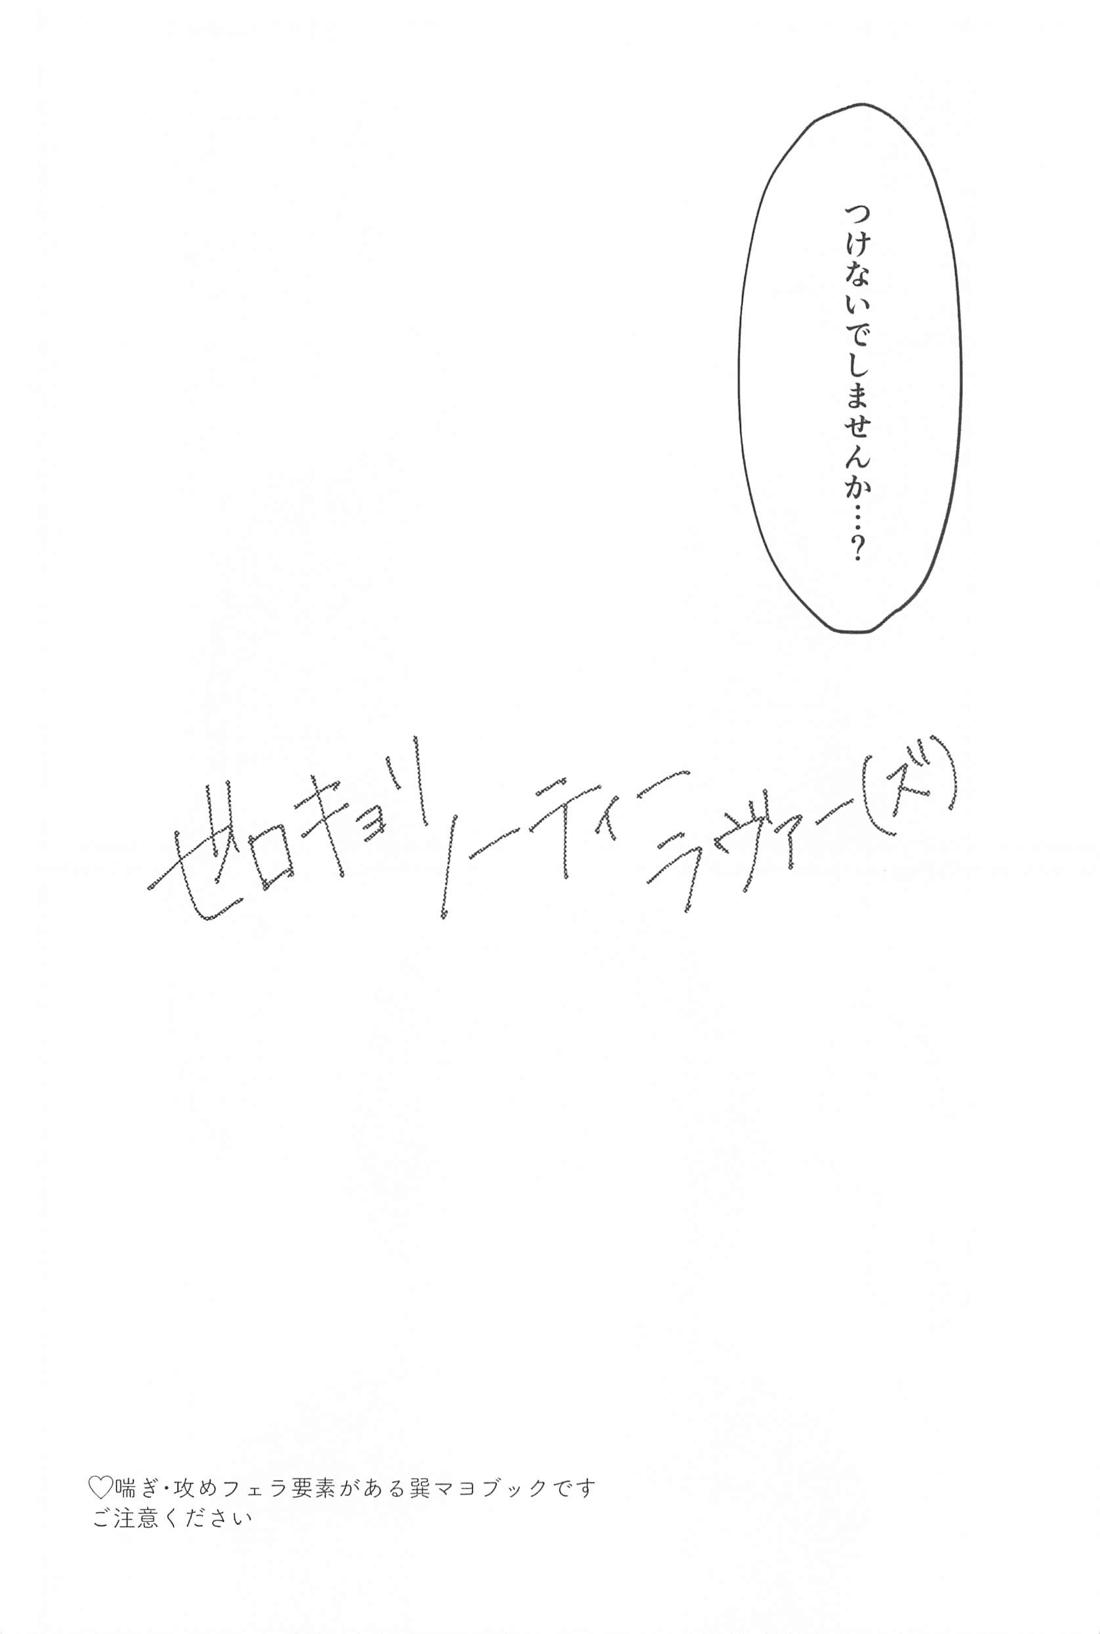 つけないでしませんか…?
ゼロキョリノーティーラヴァー(ズ)
♡喘ぎ・攻めフェラ要素がある巽マヨブックです
ご注意ください